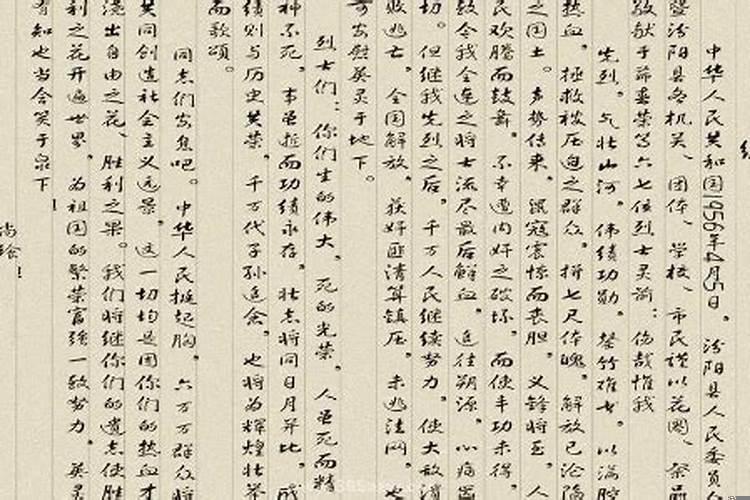 中华人民共和国1956年4月5日。汾阳县人民委员
暨汾阳县各机关、团体、学校、市民谨以花圈、祭品
敬献于茹秉荣等六七位烈士灵前：伤哉惟我
先烈。气壮山河。伟绩功勋。罄竹难书。以满腔
热血。拯救被压迫之群众。拼七尺体魄。解放已沦陷
之国土。声势传来。贼寇震惊而丧胆。义锋将至。人
民欢腾而鼓舞。不幸遭内奸之破坏。而使丰功未得。
致令我全连之将士流尽最后鲜血。追往朔源。心痛
切。但继我先烈之后。千万人民继续努力。使大敌
败逃亡。全国解放。获奸匪清算镇压。未逃法网。
发慰英灵于地下。
烈士们：你们生的伟大。死的光荣。人虽死而精
神不死。事虽殒而功绩永存。壮志将同日月并比。成
绩则与历史共荣。千万代子孙追念。也将为辉煌壮举
而歌颂。
同志们安息吧。中华人民挺起胸。六万万群众将
共同创造社会主义远景。这一切均是因你们的热血才
浇出自由之花、胜利之果。我们将继你们的遗志使胜
利之花开遍世界。为祖国的繁荣富强一致努力。英灵
有知也当含笑于泉下！
尚飨！